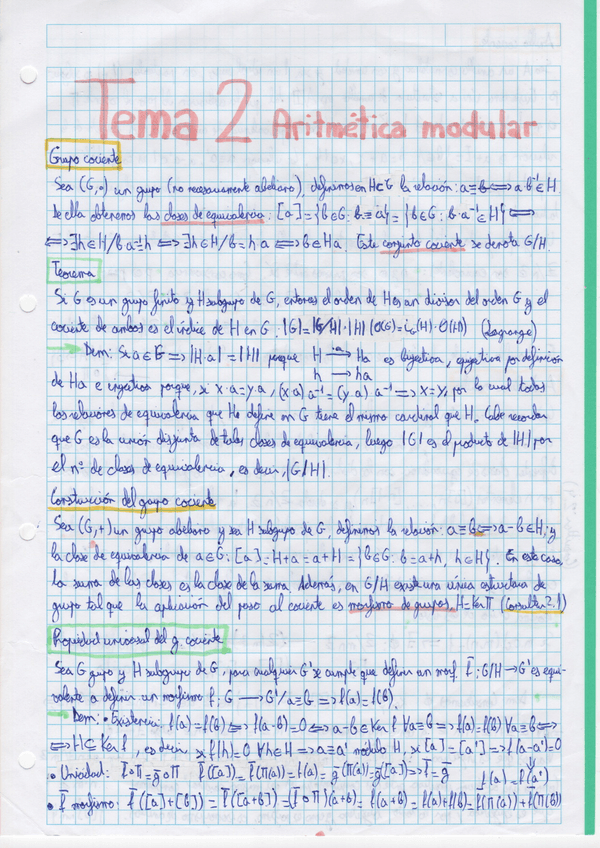 Tema 2 Aritmética modular
Grupo cociente
Sea (G,·) un grupo (no necesariamente abeliano), definimos en H⊂G la relación: a≡b⟺a·b⁻¹∈H
De ella obtenemos las clases de equivalencia: [a]={b∈G: b≡a}={b∈G: b·a⁻¹∈H}⟺
⟺∃h∈H/b·a⁻¹=h⟺∃h∈H/b=h·a⟺b∈Ha. Este conjunto cociente se denota G/H.
Teorema
Si G es un grupo finito y H subgrupo de G, entonces el orden de H es un divisor del orden G y el
cociente de ambos es el índice de H en G: |G|=|G/H|·|H| (O(G)=i_G(H)·O(H)) (Lagrange)
Dem: Si a∈G⟹|H·a|=|H| porque H ⟶ Ha es biyectiva, epiyectiva por definición
h ⟶ ha
de Ha e inyectiva porque, si x·a=y·a, (x·a)a⁻¹=(y·a)a⁻¹⟹x=y, por lo cual todas
las relaciones de equivalencia que H define en G tiene el mismo cardinal que H. Cabe recordar
que G es la unión disjunta de tales clases de equivalencia, luego |G| es el producto de |H| por
el nº de clases de equivalencia, es decir, |G/H|.
Construcción del grupo cociente
Sea (G,+) un grupo abeliano y sea H subgrupo de G, definimos la relación: a≡b⟺a-b∈H, y
la clase de equivalencia de a∈G: [a]=H+a=a+H={b∈G: b=a+h, h∈H}. En este caso,
la suma de las clases es la clase de la suma. Además, en G/H existe una única estructura de
grupo tal que la aplicación del paso al cociente es morfismo de grupos, H=Ker π (Consultar 2.1)
Propiedad universal del g. cociente
Sea G grupo y H subgrupo de G, para cualquier G' se cumple que definir un morf. f̄: G/H→G' es equi-
valente a definir un morfismo f: G ⟶ G'/a≡b⟹f(a)=f(b).
Dem: • Existencia: f(a)=f(b)⟺f(a-b)=0⟺a-b∈Ker f ∀a≡b⟹f(a)=f(b) ∀a≡b⟺
⟺H⊆Ker f, es decir, si f(h)=0 ∀h∈H⟹a≡a' módulo H, si [a]=[a']⟹f(a-a')=0
• Unicidad: f̄∘π=ḡ∘π f̄([a])=f̄(π(a))=f(a)=ḡ(π(a))=ḡ([a])⟹f̄=ḡ f(a)=f(a')
• f̄ morfismo: f̄([a]+[b])=f̄([a+b])=(f̄∘π)(a+b)=f(a+b)=f(a)+f(b)=f̄(π(a))+f̄(π(b))